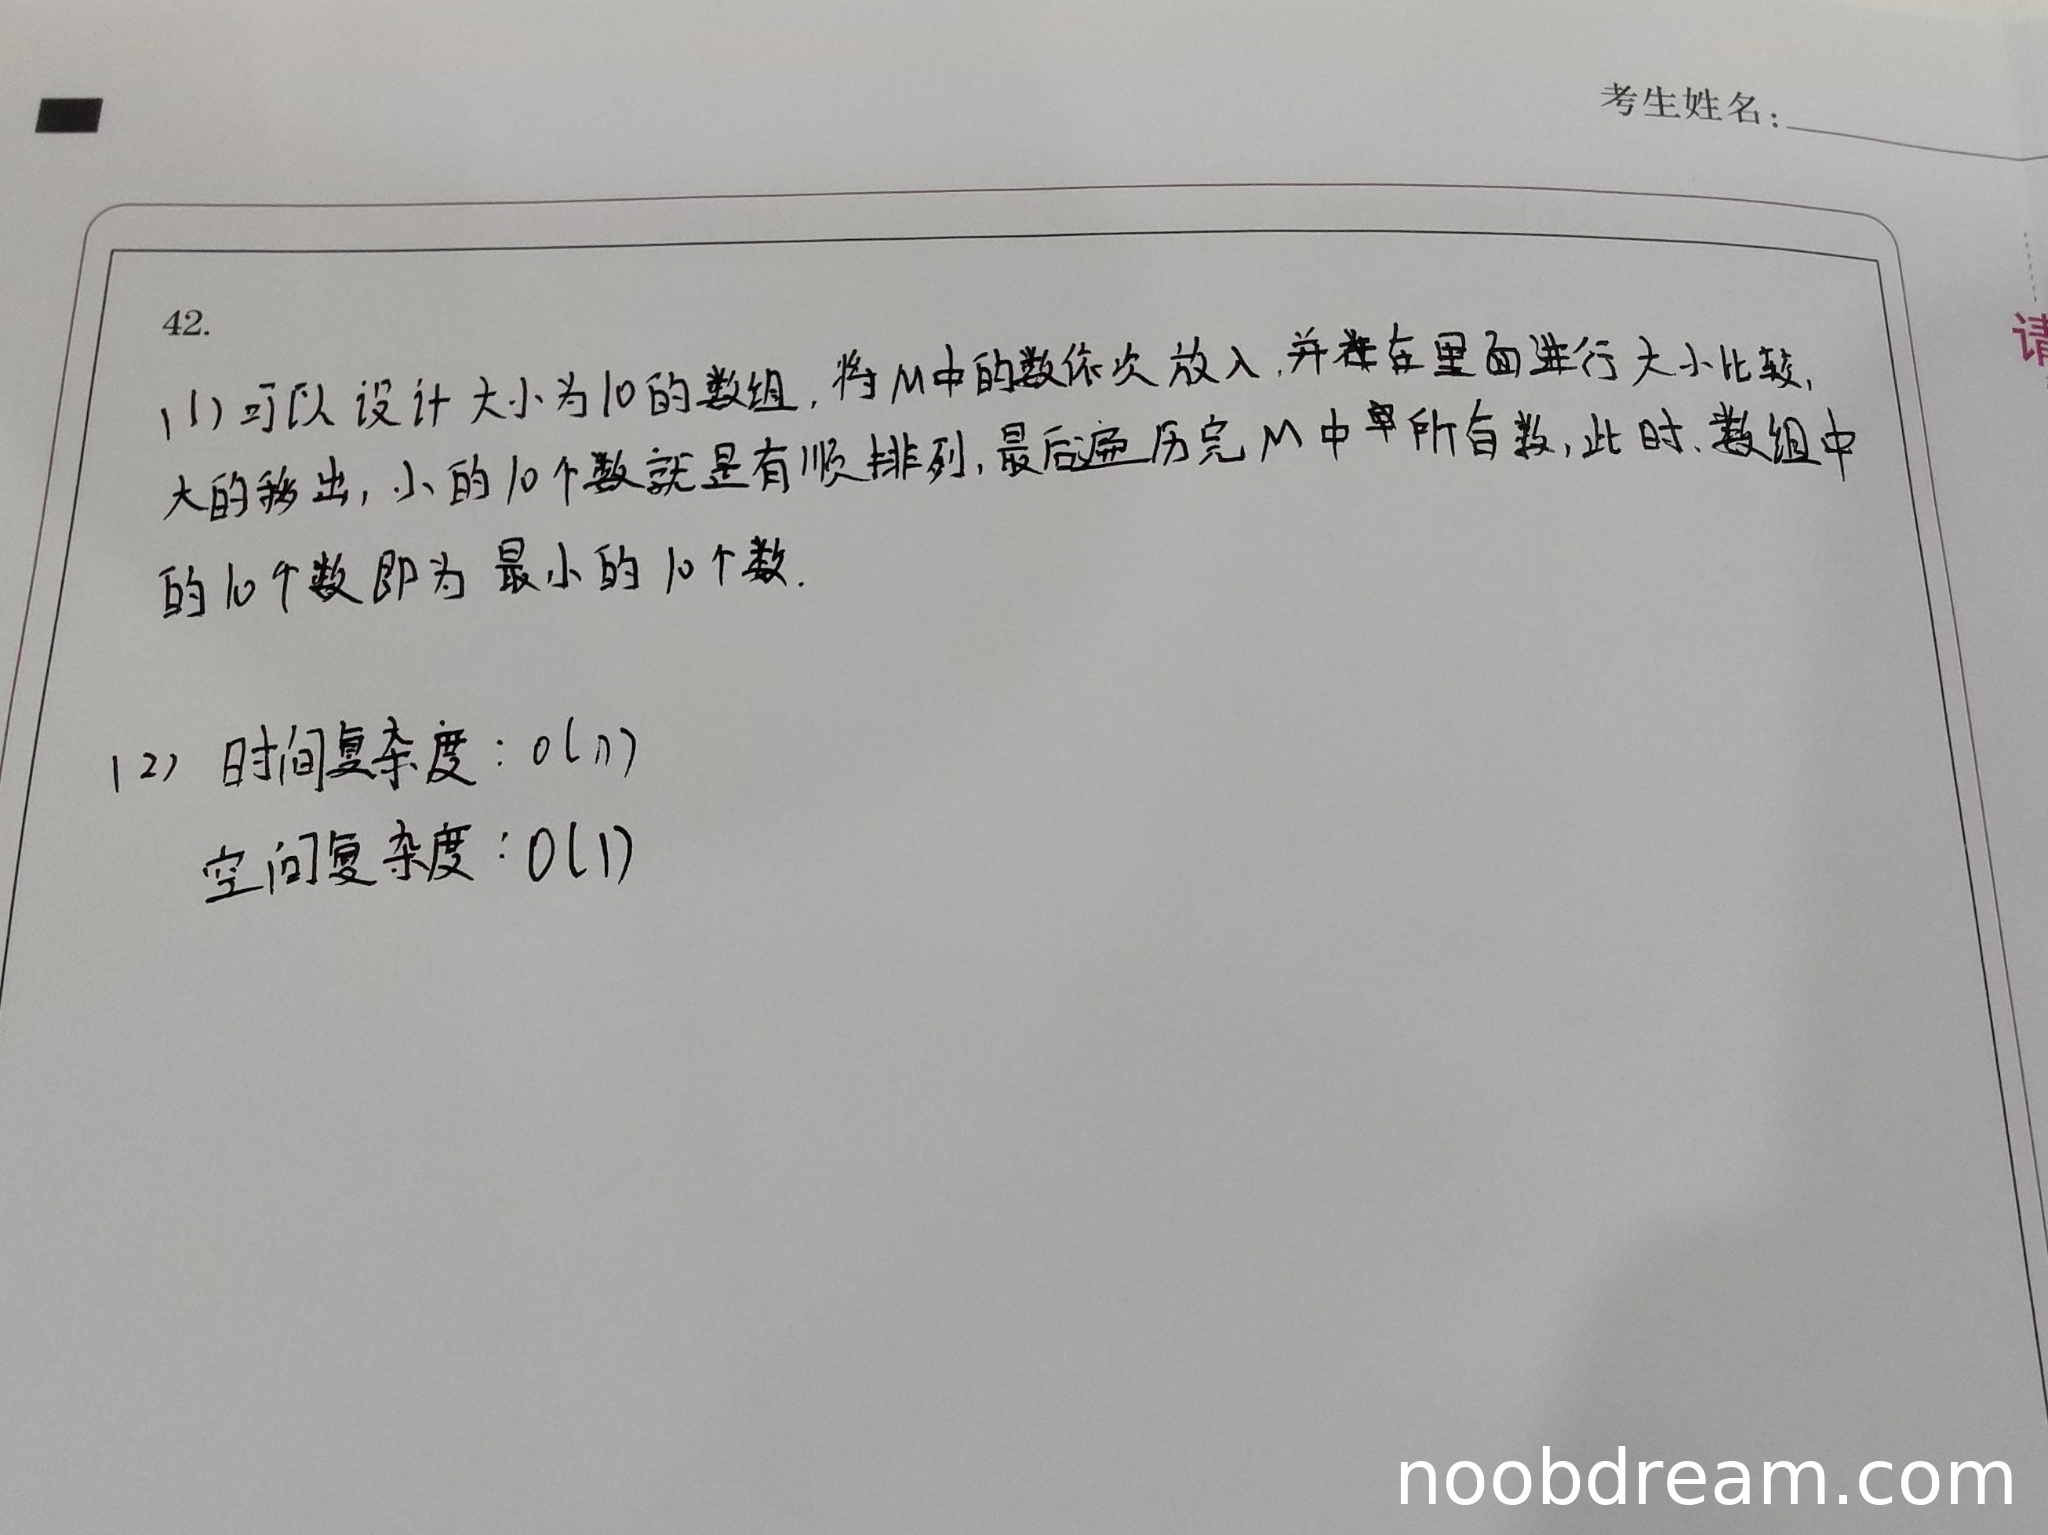 考生姓名:
请
42.
(1)可以设计大小为10的数组,将M中的数依次放入,并在里面进行大小比较,
大的移出,小的10个数就是有顺排列,最后遍历完M中所有数,此时、数组中
的10个数即为最小的10个数.
(2) 时间复杂度:O(n)
空间复杂度:O(1)
noobdream.com